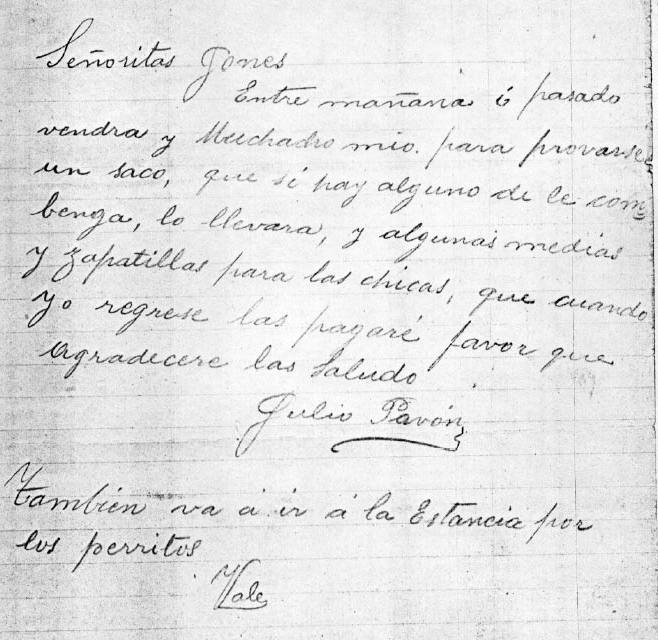 Señoritas Jones
Entre mañana ó pasado
vendra y Muchacho mio. para provarse
un saco, que si hay alguno de le com=
benga, lo llevara, y algunas medias
y zapatillas para las chicas, que cuando
yo regrese las pagaré favor que
agradecere las Saludo
Julio Pavón
También va á ir á la Estancia por
los perritos
Vale